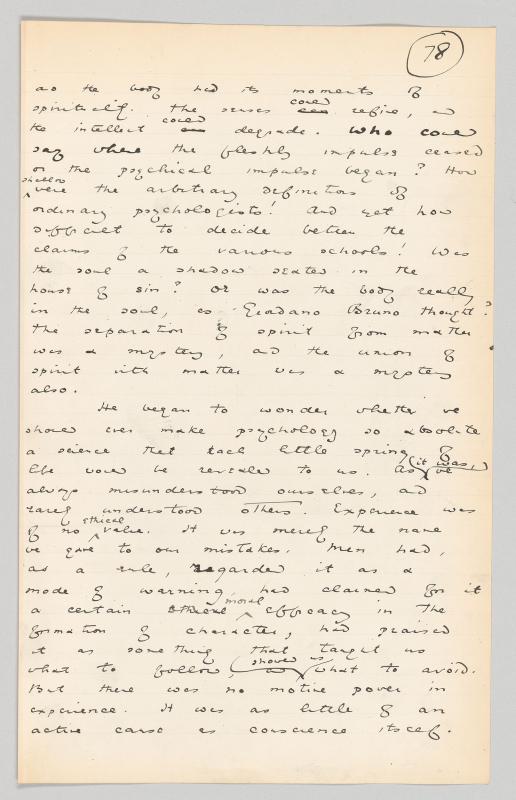 78
as the body had its moments of
spirituality. The senses could refine, and
the intellect could degrade. Who could
say where the fleshly impulse ceased
or the psychical impulse began? How
shallow
were the arbitrary definitions of
ordinary psychologists! And yet how
difficult to decide between the
claims of the various schools! Was
the soul a shadow seated in the
house of sin? Or was the body really
in the soul, as Giordano Bruno thought?
The separation of spirit from matter
was a mystery, and the union of
spirit with matter was a mystery
also.
He began to wonder whether we
should ever make psychology so absolute
a science that each little spring of
life would be revealed to us. As it was, we
always misunderstood ourselves, and
rarely understood others. Experience was
of no ethical value. It was merely the name
we gave to our mistakes. Men had,
as a rule, regarded it as a
mode of warning, had claimed for it
a certain ethical moral efficacy in the
formation of character, had praised
it as something that taught us
what to follow, and showed us what to avoid.
But there was no motive power in
experience. It was as little of an
active cause as conscience itself.